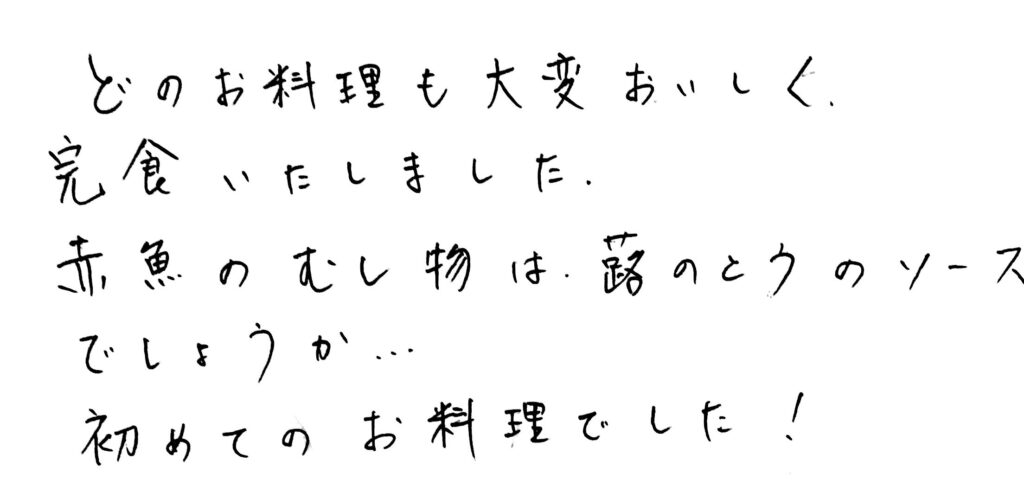 どのお料理も大変おいしく、
完食いたしました.
赤魚のむし物は、蕗のとうのソース
でしょうか…
初めてのお料理でした!